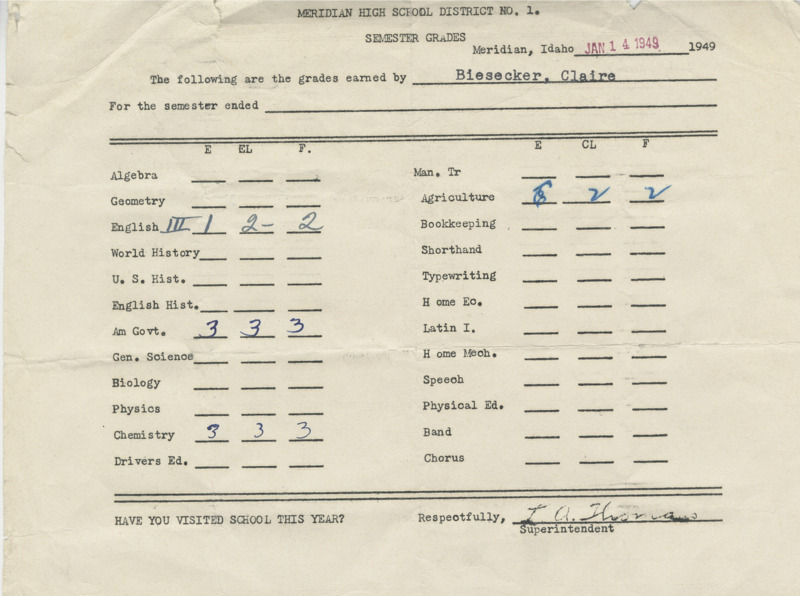 MERIDIAN HIGH SCHOOL DISTRICT NO. 1.
SEMESTER GRADES
Meridian, Idaho JAN 14 1949 1949
The following are the grades earned by Biesecker, Claire
For the semester ended
E EL F.
Algebra
Geometry
English III 1 2- 2
World History
U. S. Hist.
English Hist.
Am Govt. 3 3 3
Gen. Science
Biology
Physics
Chemistry 3 3 3
Drivers Ed.
E CL F
Man. Tr
Agriculture 2 2
Bookkeeping
Shorthand
Typewriting
H ome Ec.
Latin I.
H ome Mech.
Speech
Physical Ed.
Band
Chorus
HAVE YOU VISITED SCHOOL THIS YEAR?
Respectfully, L. A. Thomas
Superintendent